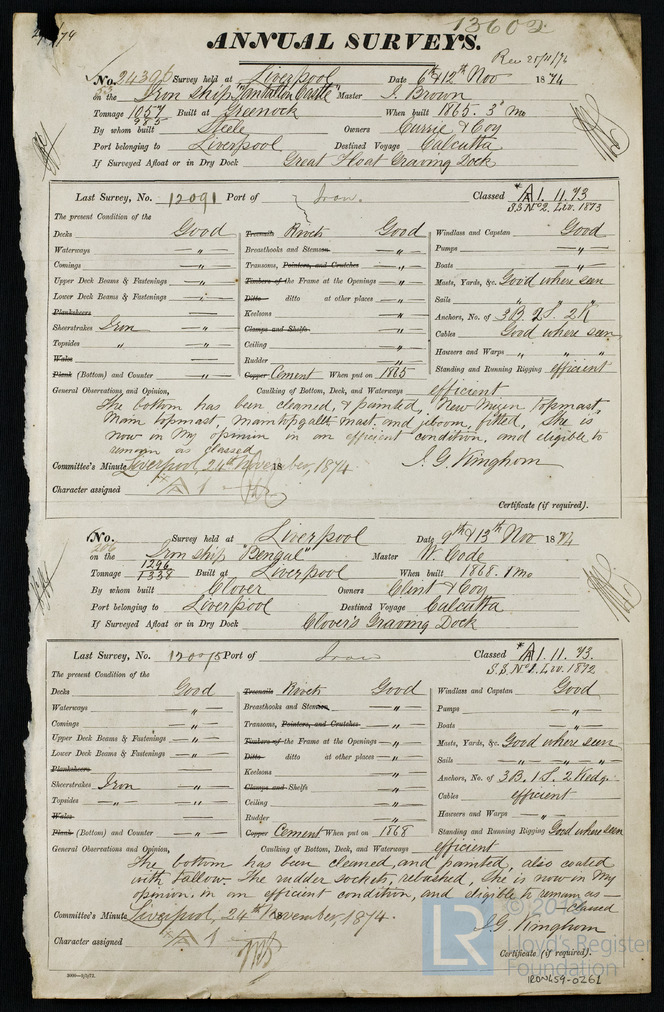 13602
ANNUAL SURVEYS.
Rec 25/11/74
No. 24396 Survey held at Liverpool Date 6th & 12th Nov 1874
on the Iron ship "Tantallon Castle" Master J. Brown
Tonnage 1057 985 Built at Greenock When built 1865. 3d Mo
By whom built Steele Owners Currie & Coy
Port belonging to Liverpool Destined Voyage Calcutta
If Surveyed Afloat or in Dry Dock Great Float Graving Dock
Last Survey, No. 12091 Port of Iron. Classed *A1. 11.73
S.S. No 2. Liv. 1873
The present Condition of the
Decks Good Treenails Rivets Good Windlass and Capstan Good
Waterways " Breasthooks and Stemson, " Pumps "
Comings " Transoms, Pointers, and Crutches " Boats "
Upper Deck Beams & Fastenings " Timbers of the Frame at the Openings " Masts, Yards, &c. Good where seen
Lower Deck Beams & Fastenings " Ditto ditto at other places " Sails " " "
Plansheers Keelsons " Anchors, No. of 3B 1S 2K
Sheerstrakes Iron Clamps and Shelfs Cables Good where seen
Topsides " Ceiling " Hawsers and Warps " " "
Wales Rudder " Standing and Running Rigging efficient
Plank (Bottom) and Counter " Copper Cement When put on 1865
General Observations and Opinion, Caulking of Bottom, Deck, and Waterways efficient
The bottom has been cleaned, & painted, New Mizen topmast,
Main topmast, maintopgallt mast, and jiboom, fitted, She is
now in my opinion in an efficient condition, and eligible to
remain as classed
J. G. Kinghorn
Committee's Minute Liverpool, 24th November, 1874
Character assigned *A 1
Certificate (if required).
No. 206 Survey held at Liverpool Date 9th & 13th Nov 1874
on the Iron ship "Bengal" Master W. Code
Tonnage 1296 1338 Built at Liverpool When built 1868. 1 Mo
By whom built Clover Owners Clint & Coy
Port belonging to Liverpool Destined Voyage Calcutta
If Surveyed Afloat or in Dry Dock Clover's Graving Dock
Last Survey, No. 12005 Port of Iron Classed *A1. 11.73.
S.S. No 1. Liv. 1872
The present Condition of the
Decks Good Treenails Rivets Good Windlass and Capstan Good
Waterways " Breasthooks and Stemson, " Pumps "
Comings " Transoms, Pointers, and Crutches " Boats "
Upper Deck Beams & Fastenings " Timbers of the Frame at the Openings " Masts, Yards, &c. Good where seen
Lower Deck Beams & Fastenings " Ditto ditto at other places " Sails " " "
Plansheers Keelsons " Anchors, No. of 3B. 1S. 2 Kedg.
Sheerstrakes Iron Clamps and Shelfs " Cables efficient
Topsides " Ceiling " Hawsers and Warps "
Wales Rudder " Standing and Running Rigging Good where seen
Plank (Bottom) and Counter " Copper Cement When put on 1868
General Observations and Opinion, Caulking of Bottom, Deck, and Waterways efficient
The bottom has been cleaned, and painted, also coated
with tallow. The rudder sockets, rebushed, She is now in my
opinion, in an efficient condition, and eligible to remain as
classed
J. G. Kinghorn
Committee's Minute Liverpool, 24th November, 1874.
Character assigned *A 1
Certificate (if required).
LR
Lloyd's Register
Foundation
IRON459-0261